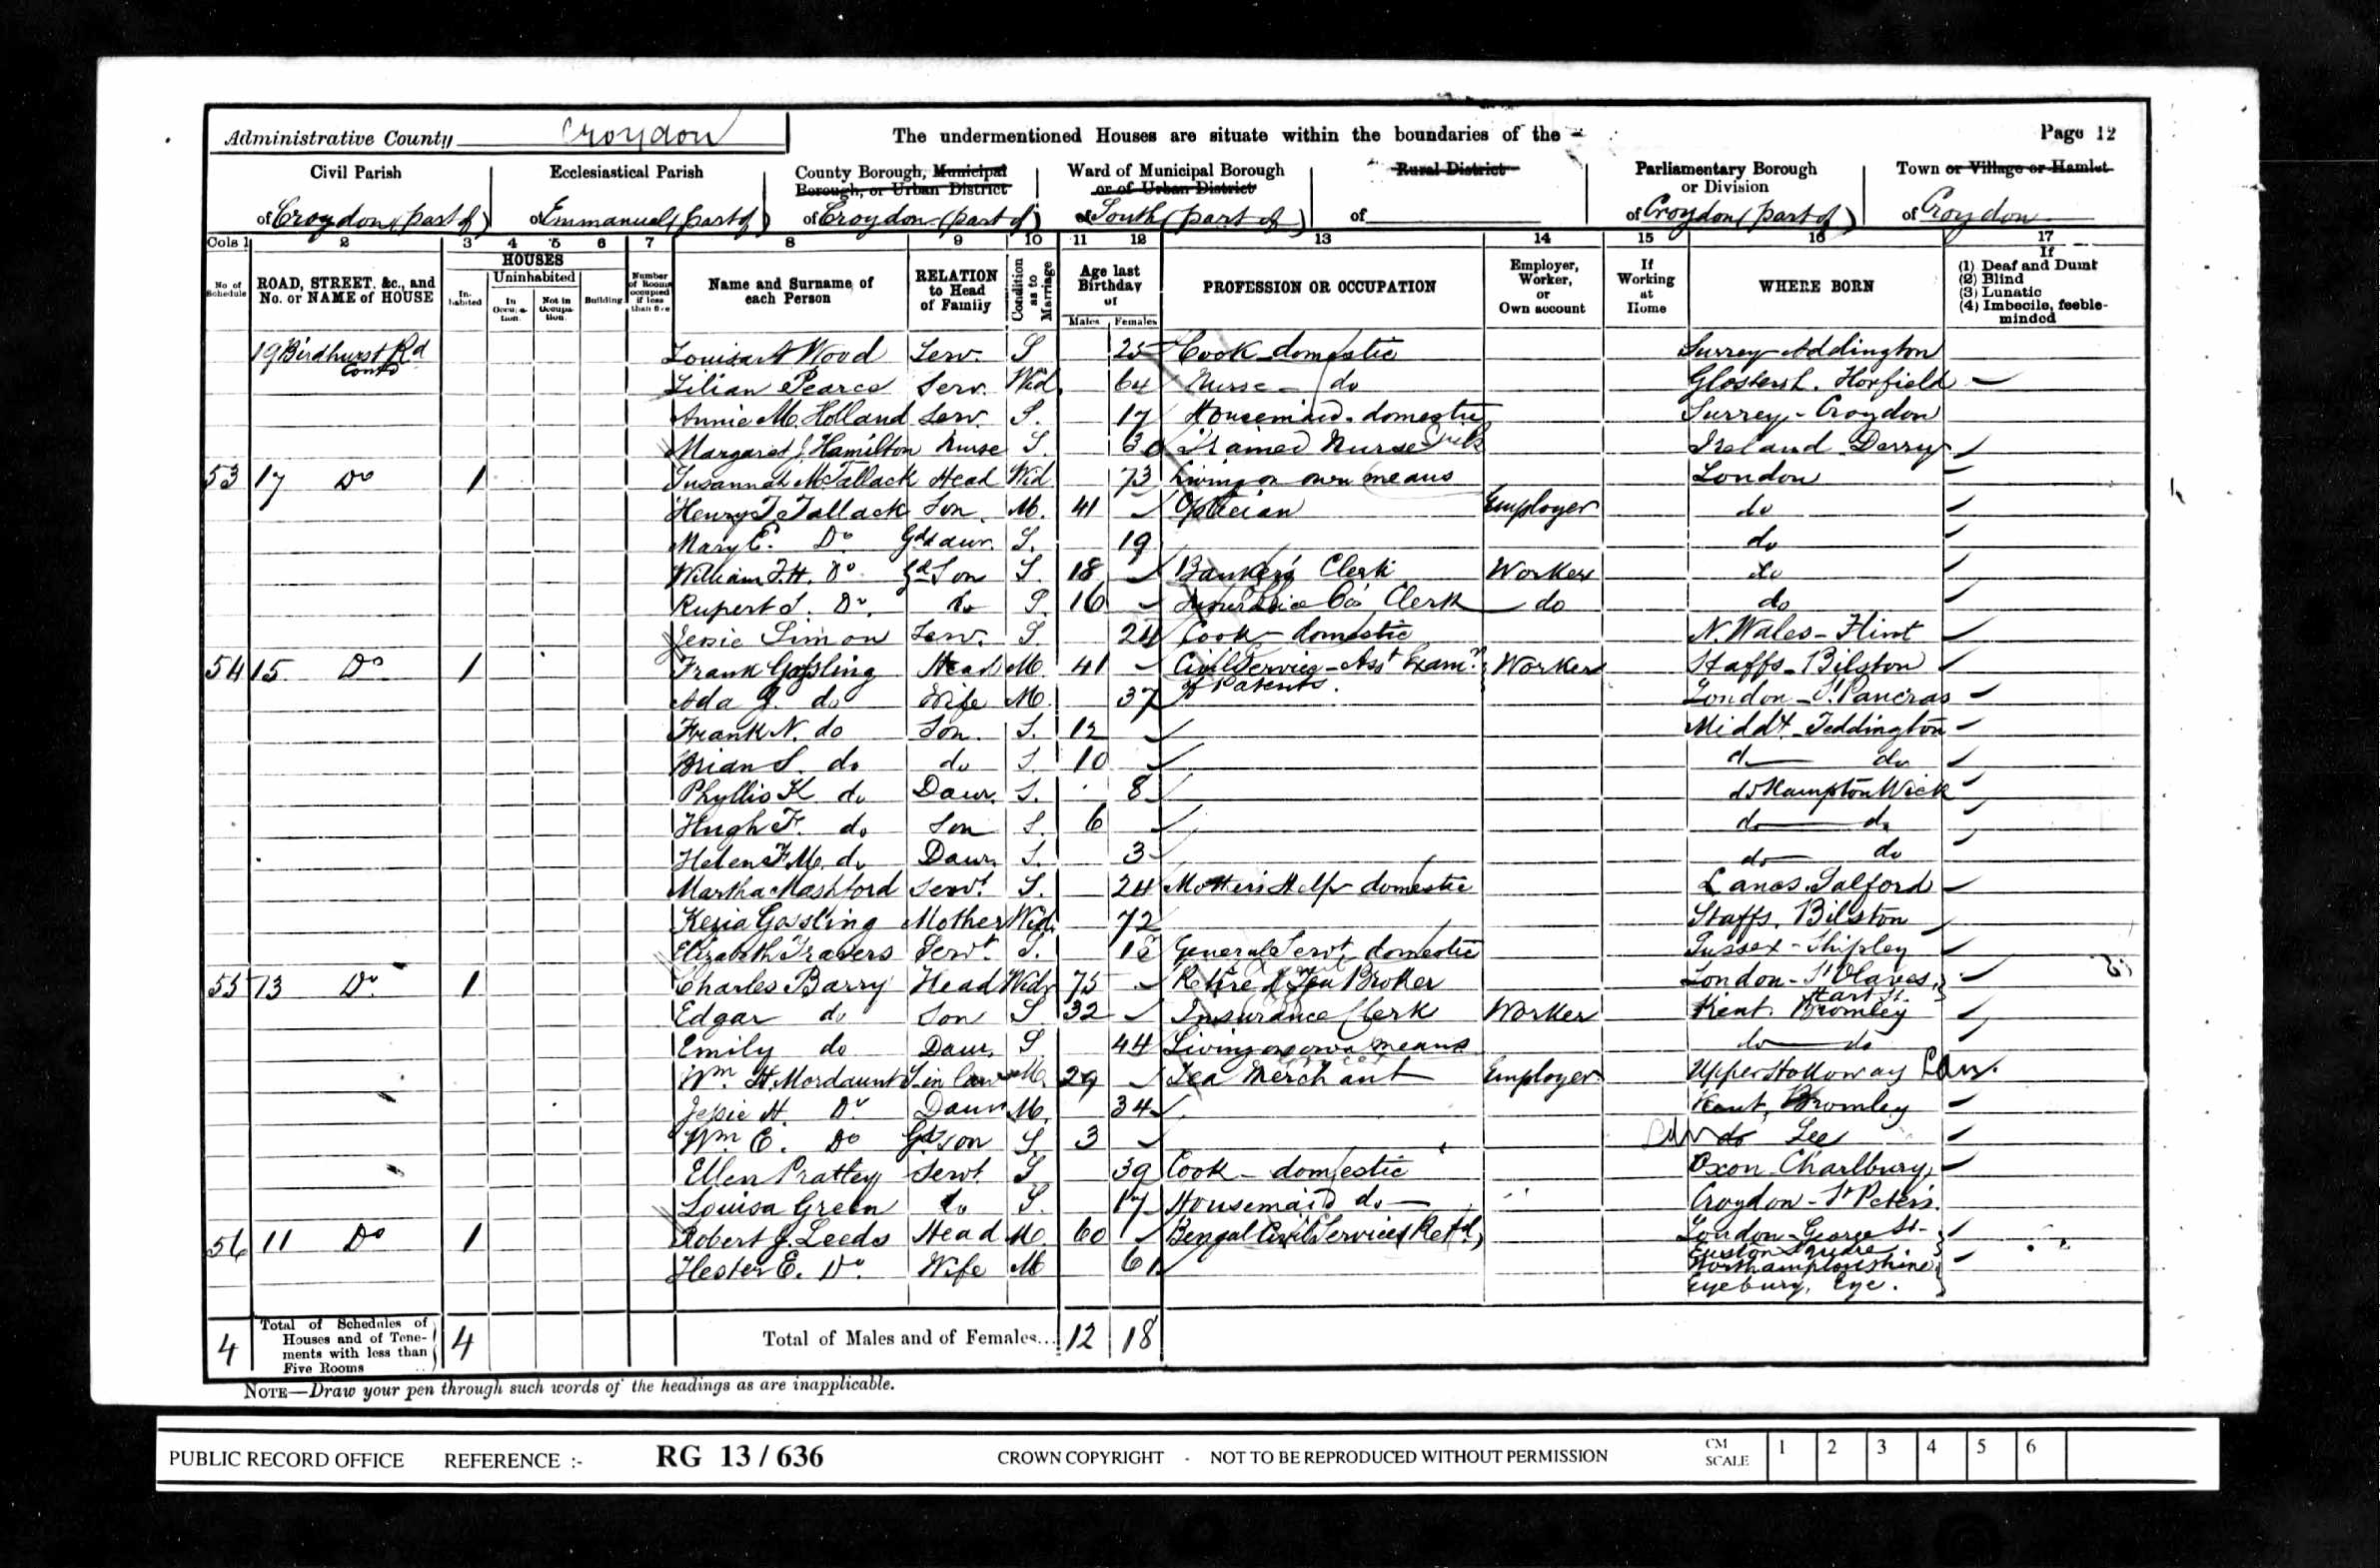 Administrative County Croydon The undermentioned Houses are situate within the boundaries of the Page 12
Civil Parish Ecclesiastical Parish County Borough, Municipal Borough, or Urban District Ward of Municipal Borough or of Urban District Rural District Parliamentary Borough or Division Town or Village or Hamlet
of Croydon (part of) of Emmanuel (part of) of Croydon (part of) of South (part of) of of Croydon (part of) of Croydon
Cols 1 2 3 4 5 6 7 8 9 10 11 12 13 14 15 16 17
No. of Schedule ROAD, STREET, &c., and No. or NAME of HOUSE HOUSES Inhabited Uninhabited In Occupation. Not in Occupation. Building Number of Rooms occupied if less than five Name and Surname of each Person RELATION to Head of Family Condition as to Marriage Age last Birthday of Males Females PROFESSION OR OCCUPATION Employer, Worker, or Own account If Working at Home WHERE BORN If (1) Deaf and Dumb (2) Blind (3) Lunatic (4) Imbecile, feeble-minded
19 Birdhurst Rd Contd Louisa A Wood Serv. S 25 Cook domestic Surrey Addington
Lilian Pearce Serv. Wid 64 Nurse do Glostersh. Horfield
Annie M. Holland Serv. S. 17 Housemaid domestic Surrey - Croydon
Margaret J Hamilton Nurse S. 30 Trained Nurse Sick Ireland Derry
53 17 Do 1 Susannah M Tallack Head Wid 73 Living on own means London
Henry T Tallack Son M. 41 Optician Employer do
Mary E. Do Gd daur. S. 19 do
William F. H. Do Gd Son S 18 Banker's Clerk Worker do
Rupert S. Do do S. 16 Insurance Co's Clerk do do
Jessie Simon Serv. S. 24 Cook - domestic N. Wales - Flint
54 15 Do 1 Frank Gossling Head M. 41 Civil Service - Asst Examr of Patents. Worker Staffs - Bilston
Ada J. do Wife M. 37 London - St Pancras
Frank N. do Son. S. 12 Middx Teddington
Brian S. do do S. 10 do do
Phyllis K do Daur. S. 8 do Hampton Wick
Hugh F. do Son S. 6 do do
Helen F M. do Daur. S. 3 do do
Martha Mashford Servt. S. 24 Mother's Help domestic Lancs. Salford
Kezia Gossling Mother Wid. 72 Staffs. Bilston
Elizabeth Travers Servt. S. 18 General Servt domestic Sussex - Shipley
55 13 Do 1 Charles Barry Head Widr 75 Retired Tea Broker London - St Olaves, Hart St.
Edgar do Son S 32 Insurance Clerk Worker Kent. Bromley
Emily do Daur. S 44 Living on own means do do
Wm. H. Mordaunt S-in law M. 29 Tea Merchant Employer Upper Holloway Lon
Jessie H. Do Daur M. 34 Kent, Bromley
Wm. C. Do Gdson S. 3 do Lee
Ellen Prattey Servt. S 39 Cook - domestic Oxon Charlbury
Louisa Green do S. 17 Housemaid do Croydon - St Peters.
56 11 Do 1 Robert J. Leeds Head M 60 Bengal Civil Services (Retd.) London - George St- Euston Square
Hester E. Do. Wife M 61 Northamptonshire, Eyebury, Eye.
4 Total of Schedules of Houses and of Tenements with less than Five Rooms 4 Total of Males and of Females... 12 18
NOTE—Draw your pen through such words of the headings as are inapplicable.
PUBLIC RECORD OFFICE REFERENCE :- RG 13 / 636 CROWN COPYRIGHT - NOT TO BE REPRODUCED WITHOUT PERMISSION CM SCALE 1 2 3 4 5 6